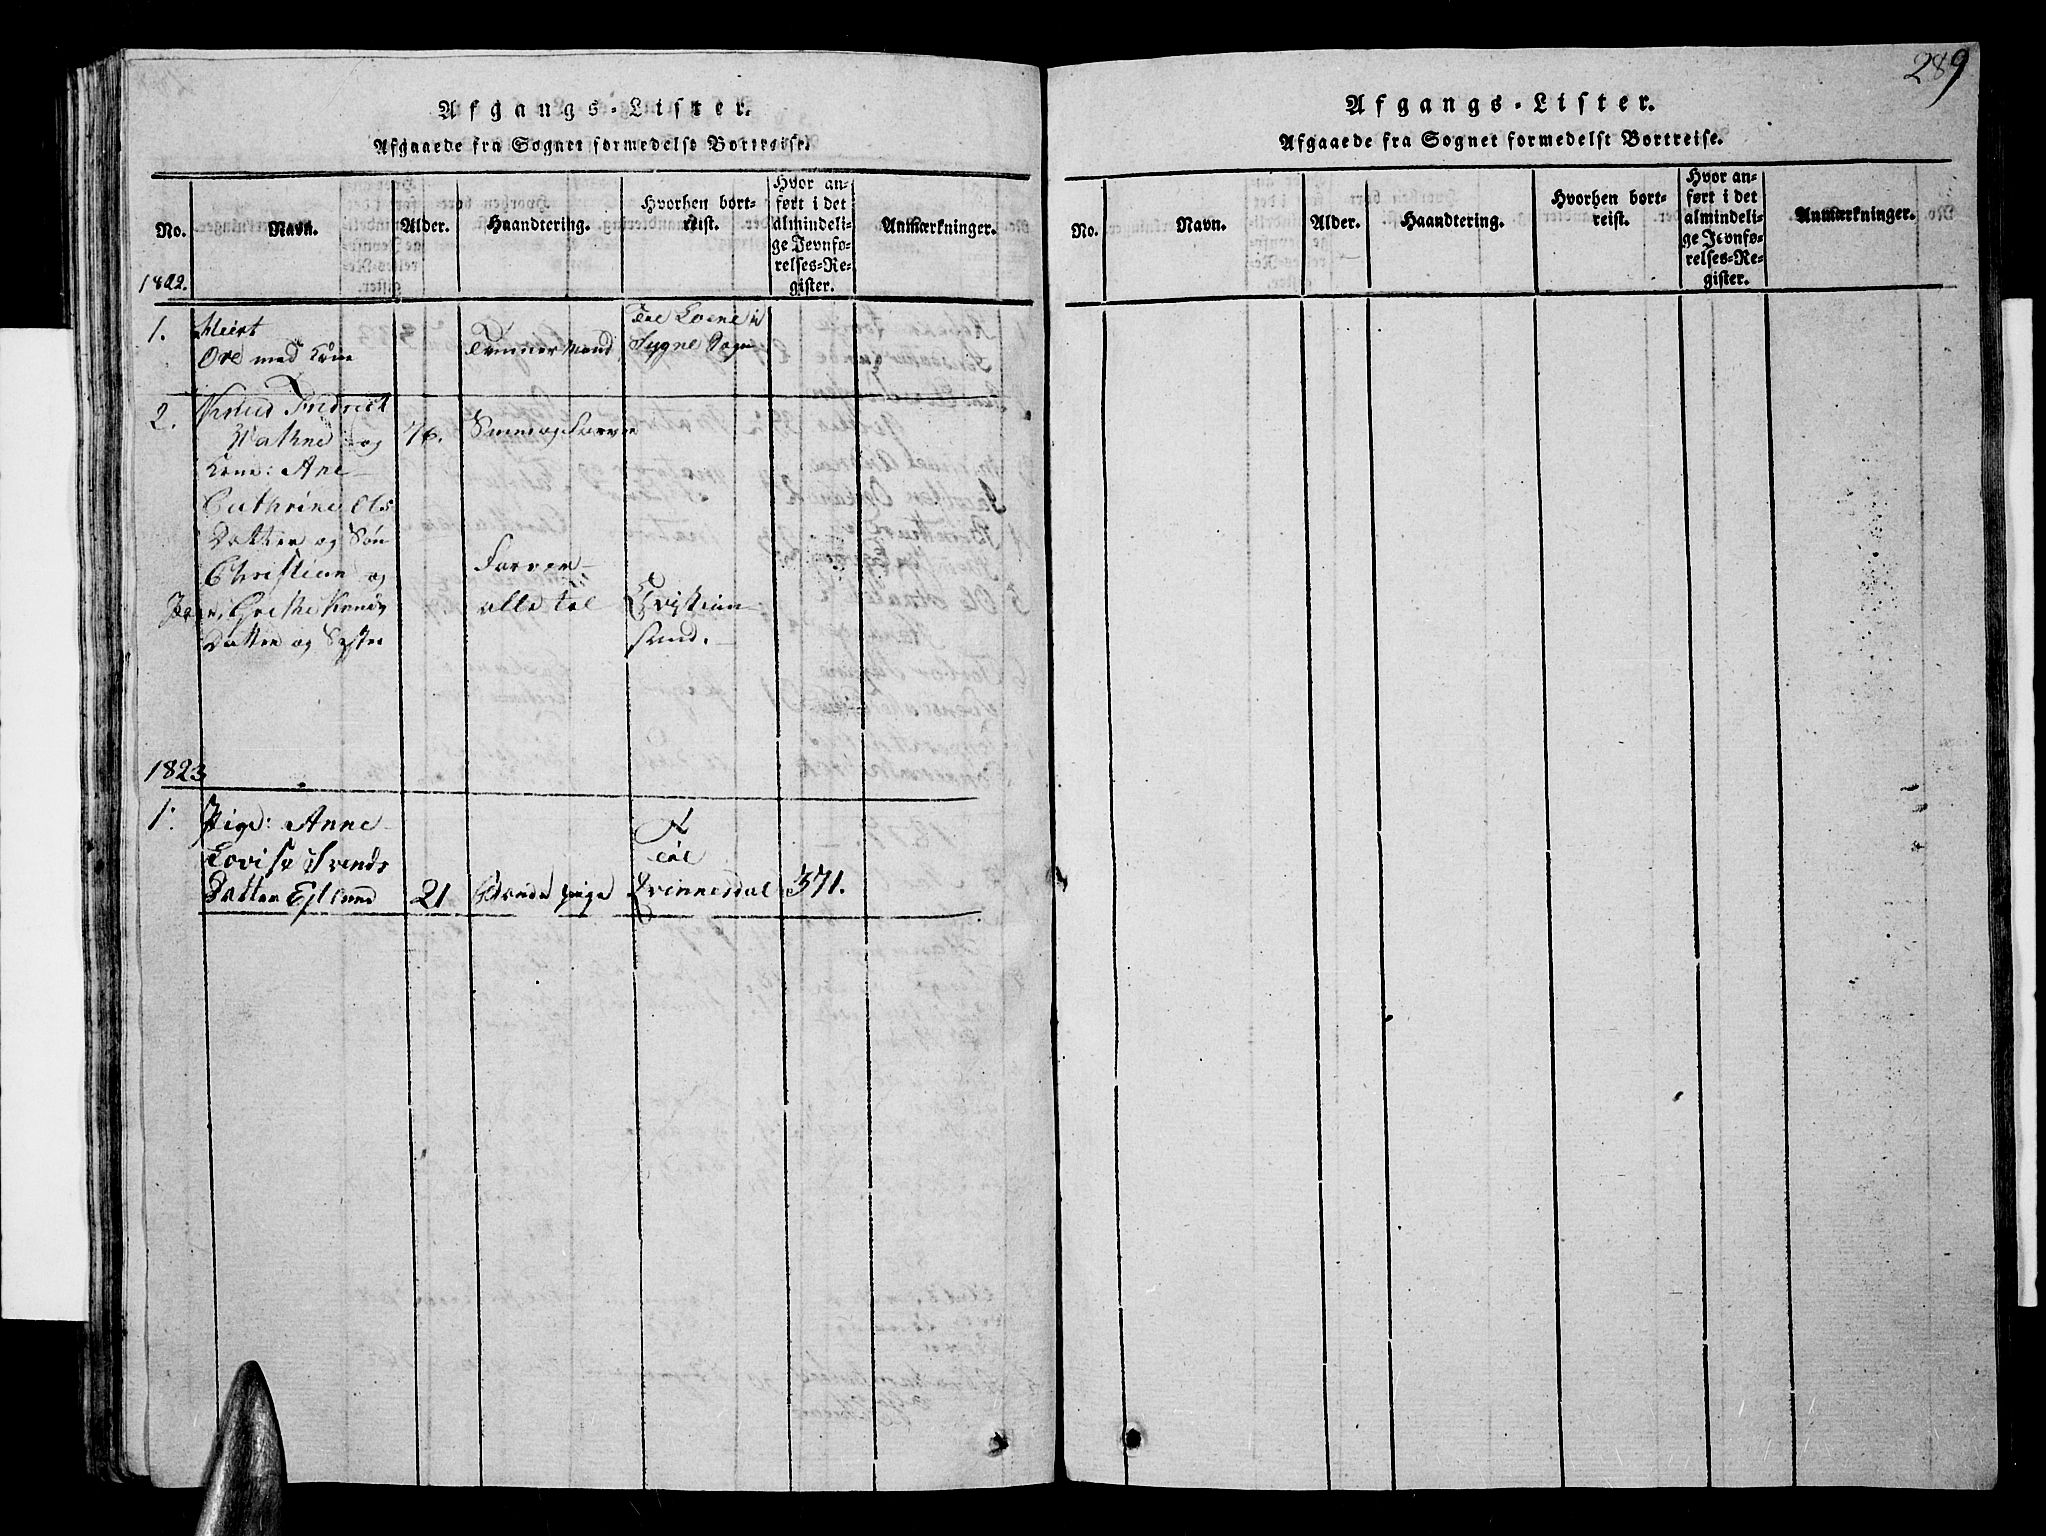 289
Afgangs-Lister.
Afgaaede fra Sognet formedelst Bortreise.
No.
Navn.
Alder.
Haandtering.
Hvorhen bort-
reist.
Hvor an-
ført i det
almindeli-
ge Jevnfø-
relses-Re-
gister.
Anmærkninger.
1822.
1.
Ove med Kone
Tømmermand
Sogn
2.
Knud Fredrick
Wathne og
76.
Kone: Ane
Cathrine Ols
Datter og Søn
Christian og
Farver
Grethe Knuds
alle til
Christian
Datter og Søster
sand.
1823
1.
Pige: Anne
Lovise Svends
Til
Datter Eftland
21
Bonde pige
Qvinnesdal
371.
Afgangs-Lister.
Afgaaede fra Sognet formedelst Bortreise.
No.
Navn.
Alder.
Haandtering.
Hvorhen bort-
reist.
Hvor an-
ført i det
almindeli-
ge Jevnfø-
relses-Re-
gister.
Anmærkninger.